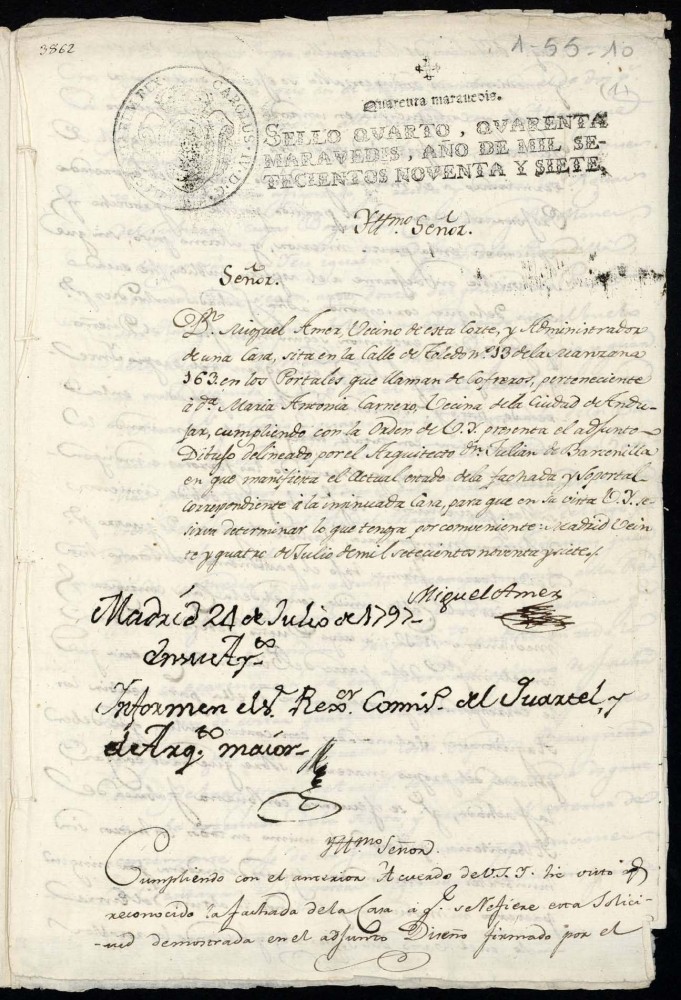 3862
1-55-10
(1)
Quarenta maravedis.
SELLO QVARTO, QVARENTA
MARAVEDIS, AÑO DE MIL SE-
TECIENTOS NOVENTA Y SIETE.
CAROLUS IV D. G.
Yttmo. Señor.
Señor.
Dn. Miguel Amer, Vecino de esta Corte, y Administrador
de una Casa, sita en la Calle de Toledo nº. 13 de la Manzana
163. en los Portales que llaman de Cofreros, perteneciente
à Dª. Maria Antonia Carnero, Vecina de la Ciudad de Andu-
jar, cumpliendo con la Orden de V.I. presenta el adjunto
Dibujo delineado por el Arquitecto Dn. Julián de Barcenilla
en que manifiesta el Actual estado de la fachada y Soportal
correspondiente à la insinuada Casa, para que en su vista V.I. se
sirva determinar lo que tenga por conveniente: Madrid Vein
te y quatro de Julio de mil setecientos noventa y siete.
Miguel Amer
Madrid 24 de Julio de 1797
En su Ayto.
Informen el Sr. Rexor. Comisº. del Quartel, y
el Arqto. maior
Yttmo. Señor.
Cumpliendo con el anterior Acuerdo de V.S.I. he visto y
reconocido la fachada de la Casa à qe. se Refiere esta Solici-
-tud demostrada en el adjunto Diseño firmado por el